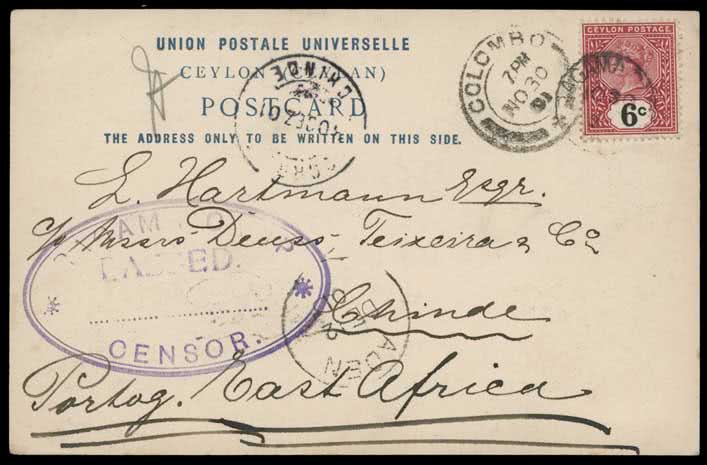 UNION POSTALE UNIVERSELLE
CEYLON (CEYLAN)
POSTCARD
THE ADDRESS ONLY TO BE WRITTEN ON THIS SIDE.
COLOMBO
7 PM
NO 30
01
RAGAMA
CEYLON POSTAGE
6c
CHINDE
10 DEZ 01
L. Hartmann Esqr.
c/o Messrs Deuss, Teixeira & Co
Chinde
Portog. East Africa
CAMP NO 2
PASSED.
CENSOR.
ADEN
DE